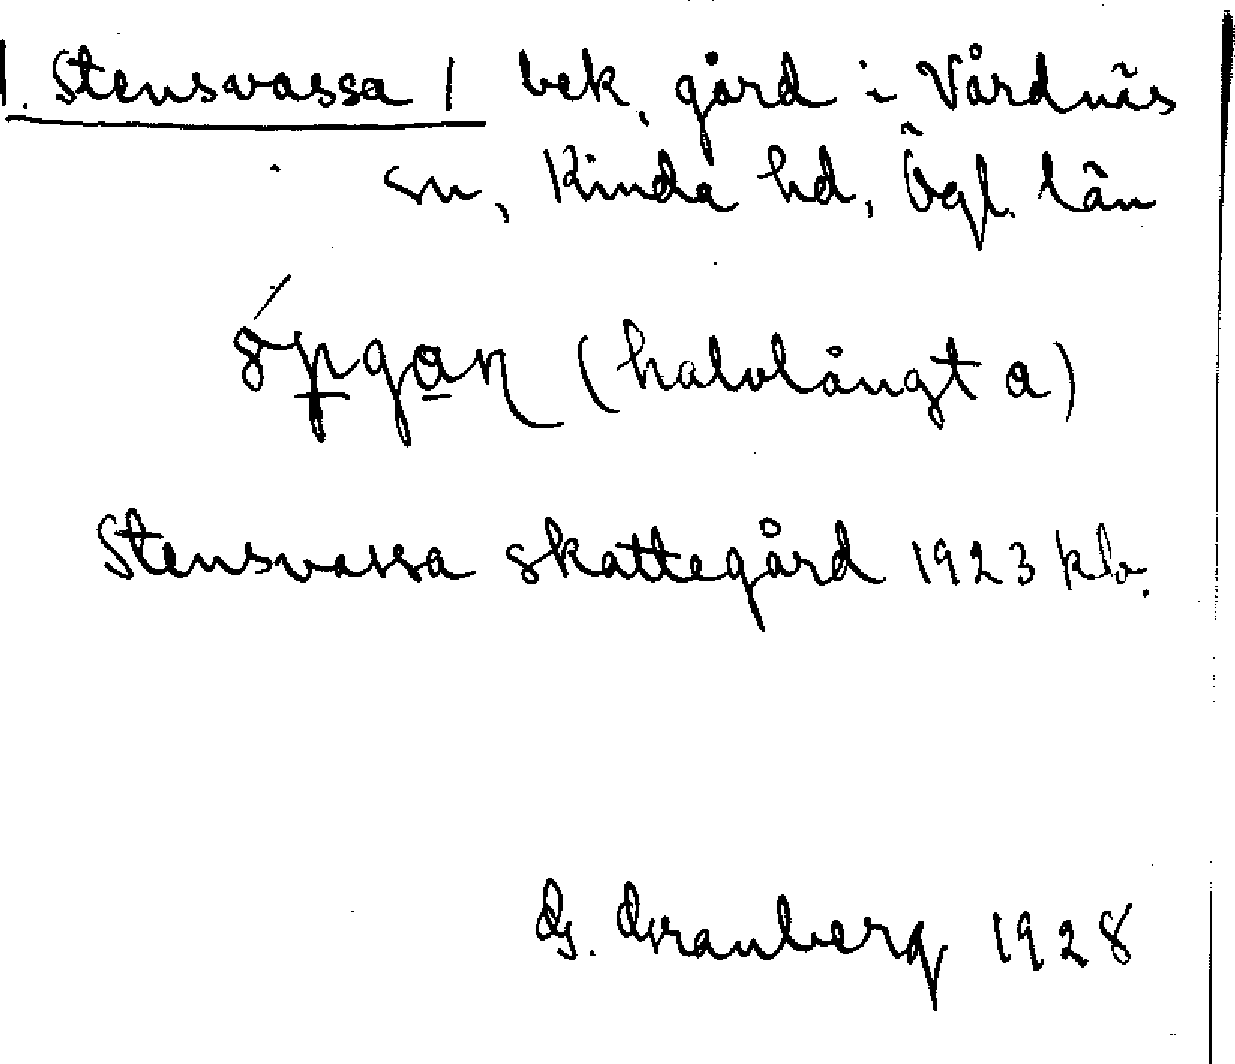 1. Stensvassa / bek. gård i Vårdnäs
sn, Kinda hd, Ögl. län
(halvlångt a)
Stensvassa skattegård 1923 klv.
G. Granberg 1928